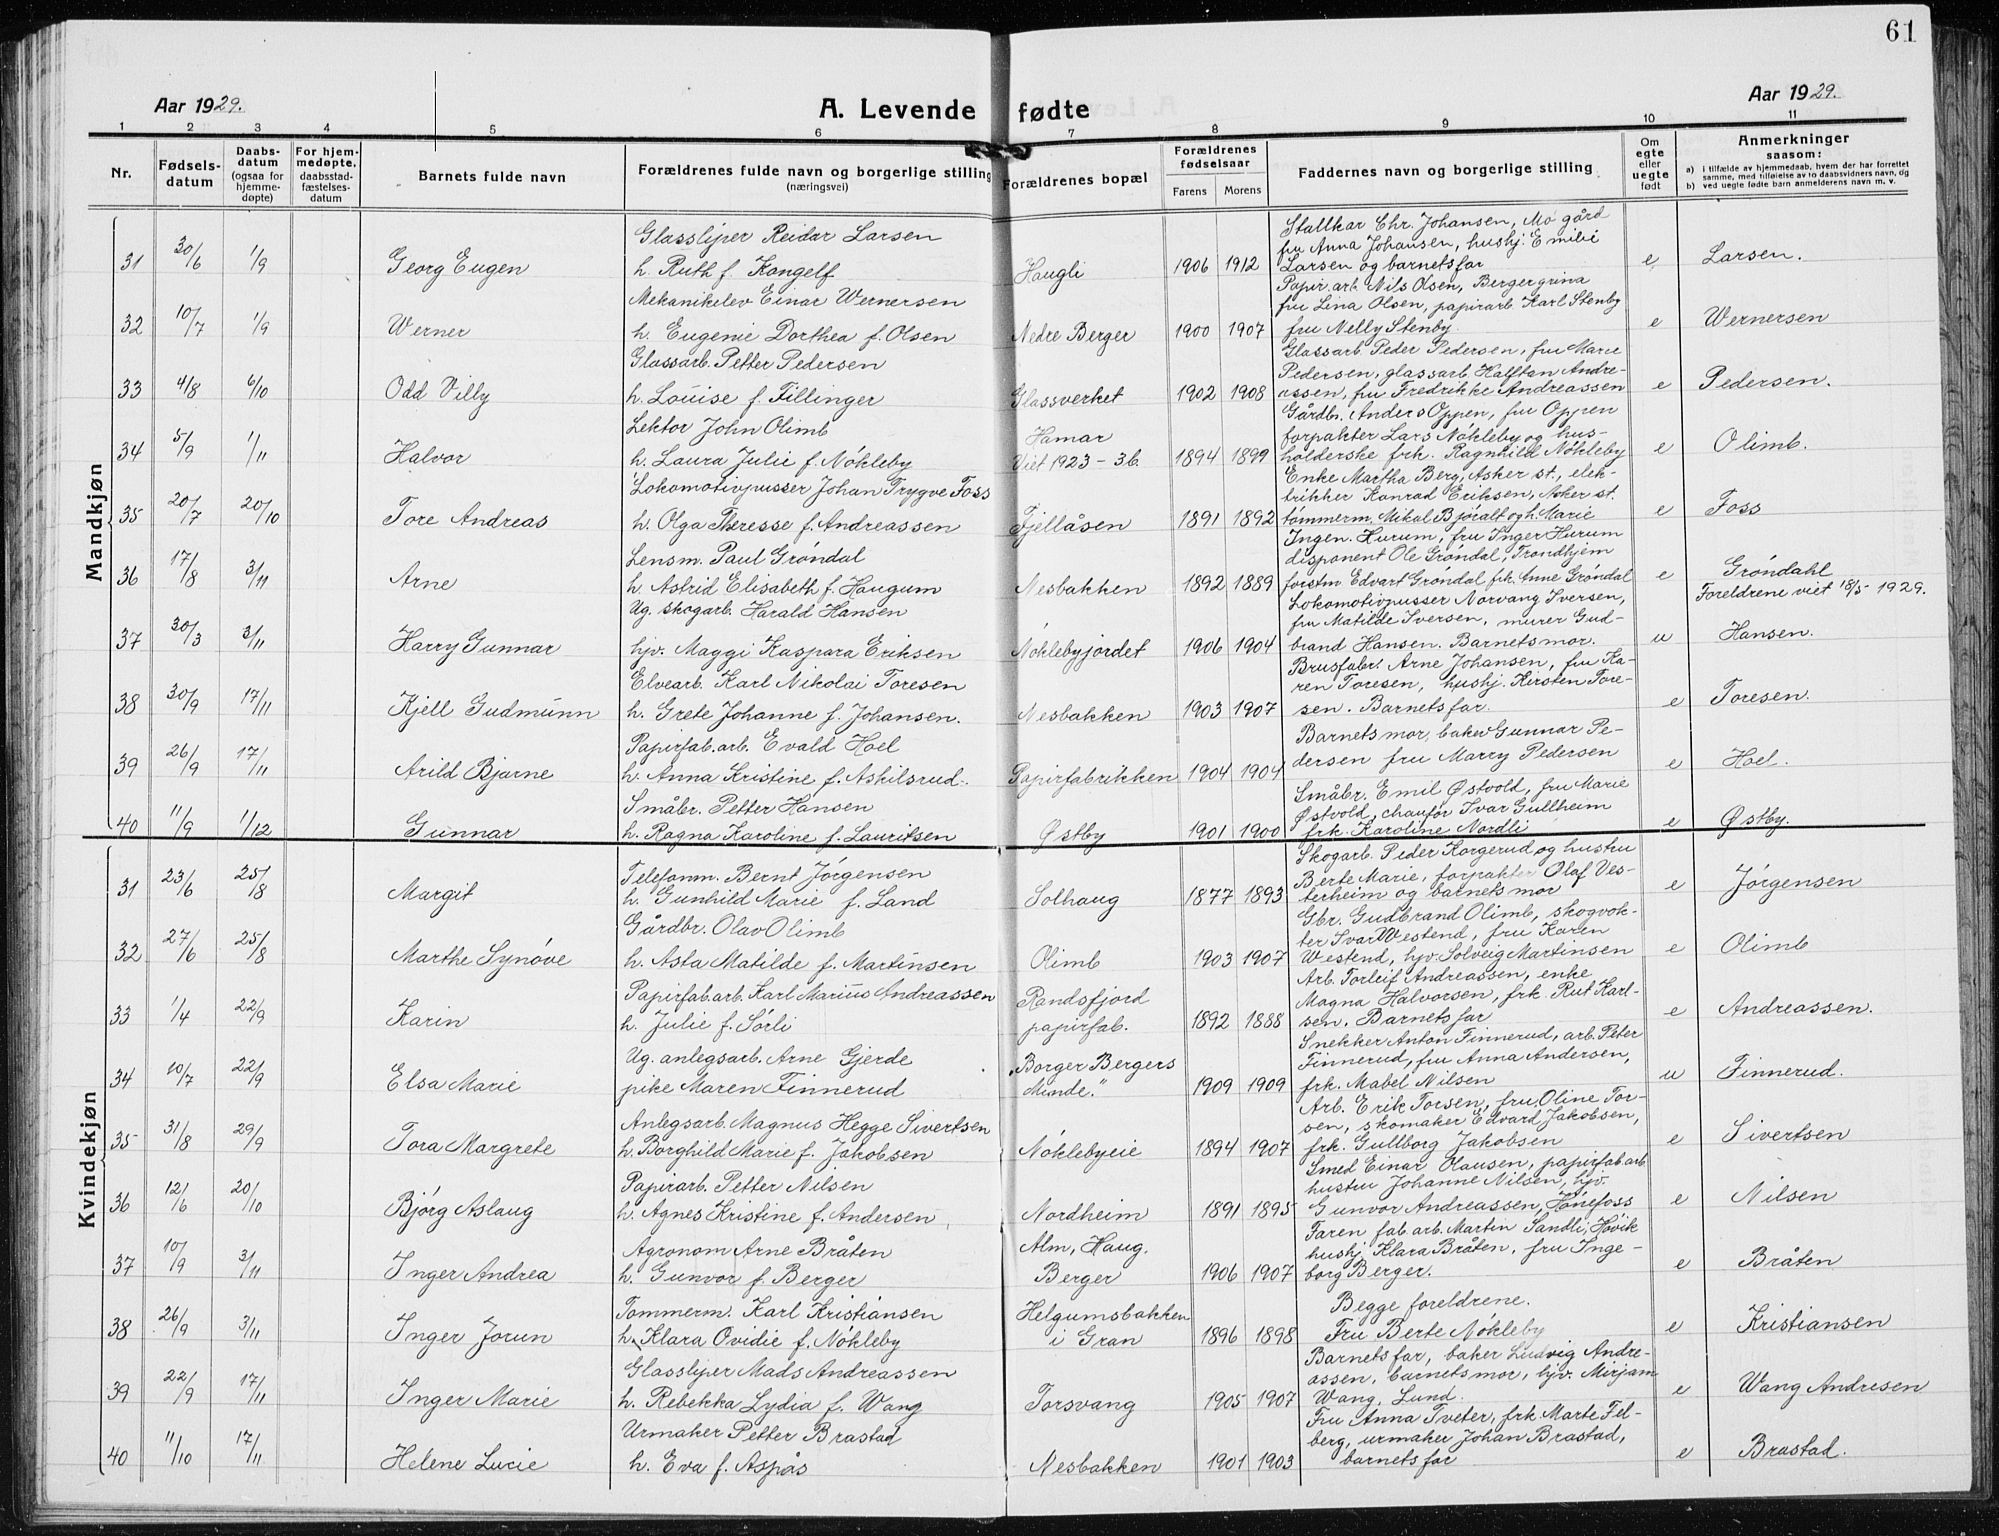 61
Aar 1929.
A. Levende fødte
Aar 1929.
1 2 3 4 5 6 7 8 9 10 11
Nr.
Fødsels-
datum
Daabs-
datum
(ogsaa for
hjemme-
døpte)
For hjem-
medøpte,
daabsstad-
fæstelses-
datum
Barnets fulde navn
Forældrenes fulde navn og borgerlige stilling
(næringsvei)
Forældrenes bopæl
Forældrenes
fødselsaar
Farens Morens
Faddernes navn og borgerlige stilling
Om
egte
eller
uegte
født
Anmerkninger
saasom:
a) i tilfælde av hjemmedaab, hvem der har forrettet
samme, med tilføielse av to daabsvidners navn, og
b) ved uegte fødte barn anmelderens navn m. v.
Mandkjøn
31 30/6 1/9 Georg Eugen
Glassliper Reidar Larsen
h. Ruth f. Kongelf
Haugli 1906 1912
Stallkar Chr. Johansen, Mo gård
fru Anna Johansen, hushj. Emilie
Larsen og barnets far
e Larsen.
32 10/7 1/9 Werner
Mekanikelev Einar Wernersen
h. Eugenie Dorthea f. Olsen
Nedre Berger 1900 1907
Papir.arb. Nils Olsen, Bergergrina
fru Lina Olsen, papirarb. Karl Stenby
fru Nelly Stenby.
e Wernersen
33 4/8 6/10 Odd Villy
Glassarb. Petter Pedersen
h. Louise f. Fillinger
Glassverket 1902 1908
Glassarb. Peder Pedersen, fru Marie
Pedersen, glassarb. Halftan Andre-
assen, fru Fredrikke Andreassen
e Pedersen.
34 5/9 1/11 Halvor
Lektor John Olimb
h. Laura Julie f. Nökleby
Hamar
Viet 1923 - 36. 1894 1899
Gårdbr. Anders Oppen, fru Oppen
forpakter Lars Nökleby og hus-
holderske frk. Ragnhild Nökleby
e Olimb.
35 20/7 20/10 Tore Andreas
Lokomotivpusser Johan Trygve Foss
h. Olga Theresse f. Andreassen
Fjellåsen 1891 1892
Enke Martha Berg, Asker st., elek-
trikker Konrad Eriksen, Asker st.
tömmerm. Mikal Björalt og h. Marie
e Foss
36 17/8 3/11 Arne
Lensm. Paul Gröndal
h. Astrid Elisabeth f. Haugum
Nesbakken 1892 1889
Ingen. Hurum, fru Inger Hurum
disponent Ole Gröndal, Trondhjem
forstm Edvart Gröndal frk. Anne Gröndal
e Gröndahl
Foreldrene viet 18/5 1929.
37 30/3 3/11 Harry Gunnar
Ug. skogarb. Harald Hansen
hjv. Maggi Kaspara Eriksen
Nöklebyjordet 1906 1904
Lokomotivpusser Norvang Iversen,
fru Matilde Iversen, murer Gud-
brand Hansen. Barnets mor.
u Hansen.
38 30/9 17/11 Kjell Gudmunn
Elvearb. Karl Nikolai Toresen
h. Grete Johanne f. Johansen.
Nesbakken 1903 1907
Brusfabr. Arne Johansen, fru Ka-
ren Toresen, hushj. Kirsten Tore-
sen. Barnets far.
e Toresen.
39 26/9 17/11 Arild Bjarne
Papirfab.arb. Evald Hoel
h. Anna Kristine f. Askilsrud.
Papirfabrikken 1904 1904
Barnets mor, baker Gunnar Pe-
dersen fru Marry Pedersen
e Hoel.
40 11/9 1/12 Gunnar
Småbr. Petter Hansen
h. Ragna Karoline f. Lauritsen
Østby 1901 1900
Småbr. Emil Østvold, fru Marie
Østvold, chaufør Ivar Gullheim
frk. Karoline Nordli
e Østby.
Kvindekjøn
31 23/6 25/8 Margit
Telefonm. Bernt Jörgensen
h. Gunhild Marie f. Land
Solhaug 1877 1893
Skogarb. Peder Korgerud og hustru
Berte Marie, forpakter Olaf Ves-
terheim og barnets mor
e Jørgensen
32 27/6 25/8 Marthe Synöve
Gårdbr. Olav Olimb
h. Asta Matilde f. Martinsen
Olimb 1903 1907
Gbr. Gudbrand Olimb, skogvok-
ter Svar Westend, fru Karen
Westend, hjv. Solveig Martinsen
e Olimb
33 1/4 22/9 Karin
Papirfab.arb. Karl Marius Andreassen
h. Julie f. Sörli
Randsfjord
papirfab. 1892 1888
Arb. Torleif Andreassen, enke
Magna Halvorsen, frk. Rut Karl-
sen. Barnets far
e Andreassen.
34 10/7 22/9 Elsa Marie
Ug. anlegsarb. Arne Gjerde
pike Maren Finnerud
"Borger Bergers
Minde." 1909 1909
Snekker Anton Finnerud, arb. Peter
Finnerud, fru Anna Andersen,
frk. Mabel Nilsen
u Finnerud.
35 31/8 29/9 Tora Margrete
Anlegsarb. Magnus Hegge Sivertsen
h. Borghild Marie f. Jakobsen
Nöklebyeie 1894 1907
Arb. Erik Torsen, fru Oline Tor-
sen, skomaker Edvard Jakobsen,
frk. Gullborg Jakobsen
e Sivertsen
36 12/6 20/10 Bjórg Aslaug
Papirarb. Petter Nilsen
h. Agnes Kristine f. Andersen
Nordheim 1891 1895
Smed Einar Olausen, papirfab.arb.
hustru Johanne Nilsen, hjv.
Gunvor Andreassen, Hönefoss
e Nilsen
37 10/9 3/11 Inger Andrea
Agronom Arne Bråten
h. Gunvor f. Berger
Alm, Haug.
Berger 1906 1907
Faren fab.arb. Martin Sandli, Hövik
hushj. Klara Bråten, fru Inge-
borg Berger.
e Bråten
38 26/9 3/11 Inger Jorun
Tömmerm. Karl Kristiansen
h. Klara Ovidie f. Nökleby
Helgumsbakken
i Gran 1896 1898
Begge foreldrene.
Fru Berte Nökleby
e Kristiansen
39 22/9 17/11 Inger Marie
Glassliper Mads Andreassen
h. Rebekka Lydia f. Wang
Torsvang 1905 1907
Barnets far, baker Ludvig Andre-
assen, barnets mor, hjv. Mirjam
Wang. Lund.
e Wang Andresen
40 11/10 17/11 Helene Lucie
Urmaker Petter Brastad
h. Eva f. Aspås
Nesbakken 1901 1903
Fru Anna Tveter, frk. Marte Fel-
berg, urmaker Johan Brastad,
barnets far
e Brastad.